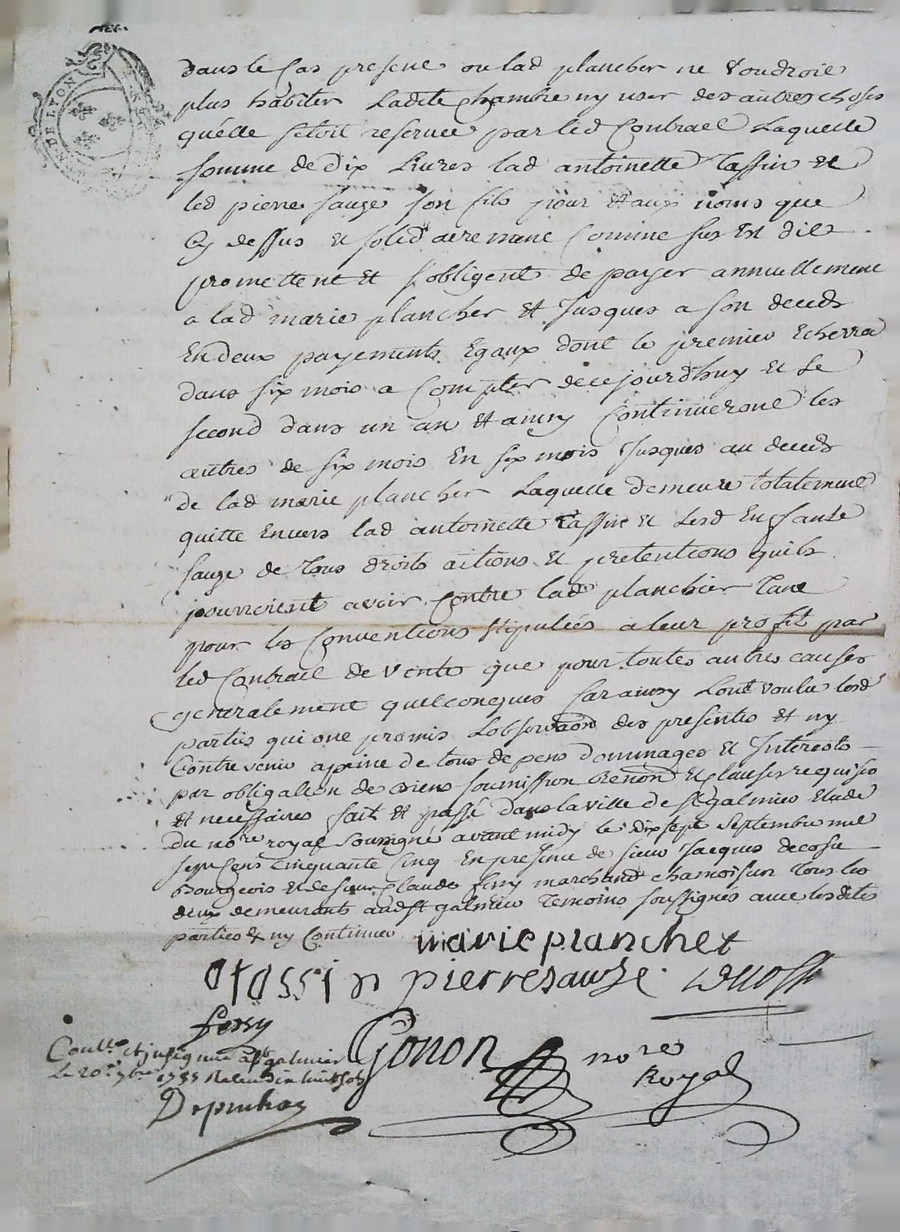 DE LYON
dans le Cas present ou lad plancher ne Voudroit
plus habiter Ladite Chambre ny user des autres choses
quelle setoit reservee par led Contract Laquelle
somme de dix Livres lad antoinette Tassin et
led pierre sauze son fils pour et aux noms que
Cy dessus et solidairement Comme sus Est dit
promettent et sobligent de payer annuellement
a lad marie plancher et Jusques a son deceds
En deux payements Egaux dont le premier Echerra
dans six mois a Compter de ce jourdhuy et Le
second dans un an et ainsy Continueront les
autres de six mois En six mois Jusques au deceds
de lad marie plancher Laquelle demeure totalement
quitte Envers lad antoinette Tassin et Lesd Enfants
sauze de tous droits actions et pretentions quils
pourroient avoir Contre lad plancher Tant
pour les Conventions stipulées a leur profit par
led Contract de Vente que pour toutes autres causes
generalement quelconques Car ainsy Lont voulu lesd
parties qui ont promis Lobservaon des presentes et ny
Contrevenir a peine de tous depens dommages et Interests
par obligation de biens soumission Renon et Clauses requises
et necessaires fait et passé dans la ville de st galmier Etude
du nore royal soussigné avant midy le dix sept septembre mil
sept Cens Cinquante Cinq En presence de sieur Jacques decoste
Bourgeois et de sieur Claude fessy marchand chamoiseur Tous les
deux demeurants aud st galmier temoins soussignés avec lesdites
parties et ny Continue
marie planchet
a tassin pierre sauze
fessy
Gonon nore
Royal
Coullé et insinué a st galmier
Le 20e 7bre 1755